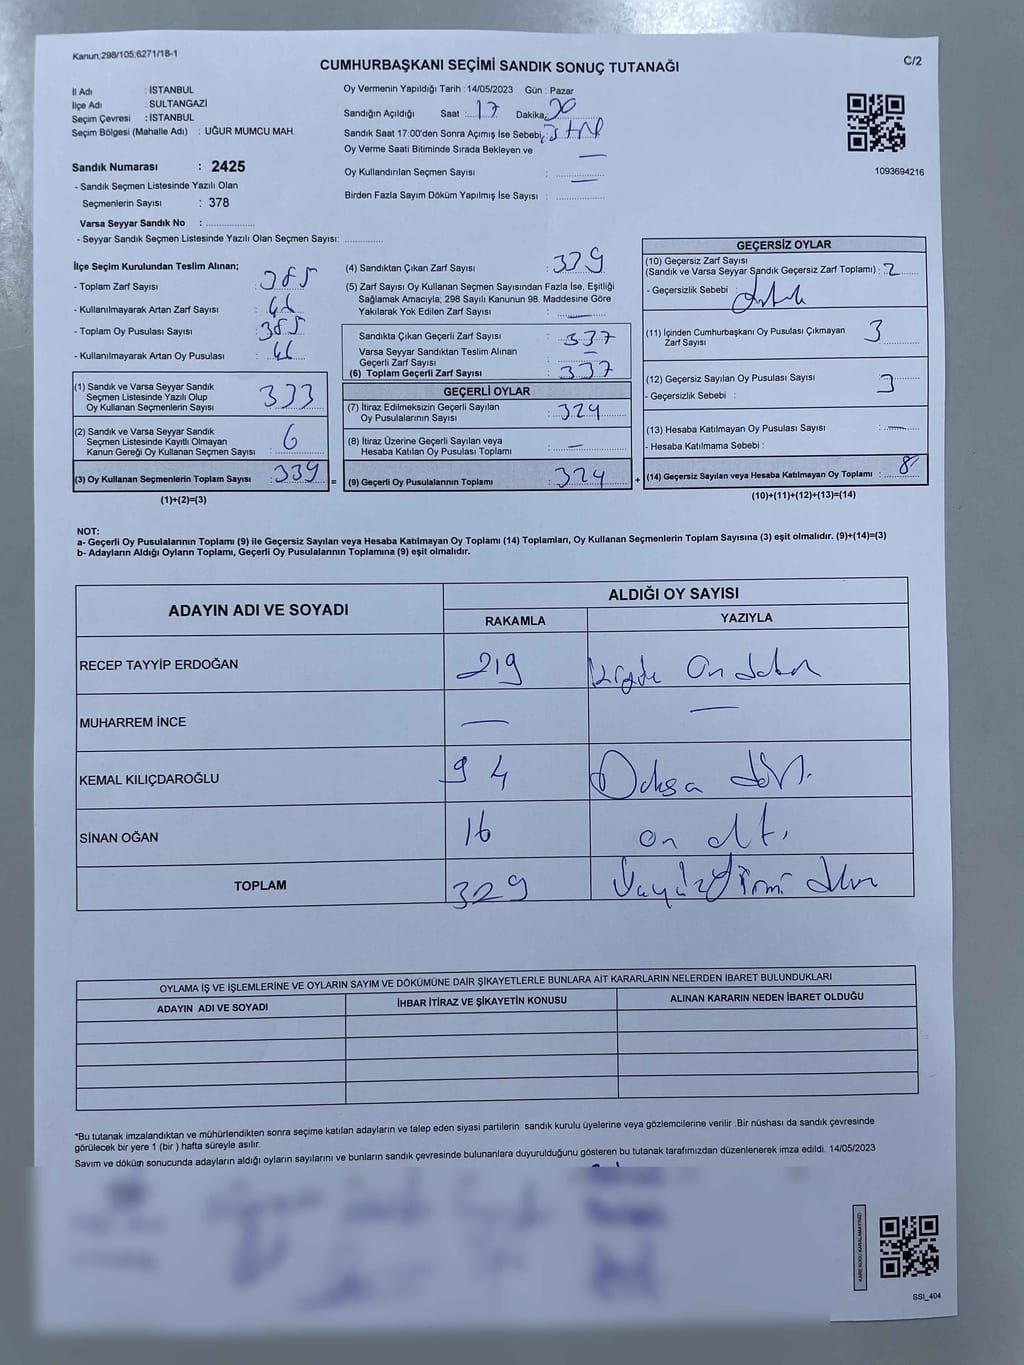 Kanun,298/105,6271/18-1
C/2
CUMHURBAŞKANI SEÇİMİ SANDIK SONUÇ TUTANAĞI
İl Adı : İSTANBUL
İlçe Adı : SULTANGAZİ
Seçim Çevresi : İSTANBUL
Seçim Bölgesi (Mahalle Adı) : UĞUR MUMCU MAH.
Sandık Numarası : 2425
- Sandık Seçmen Listesinde Yazılı Olan
Seçmenlerin Sayısı : 378
Varsa Seyyar Sandık No :
- Seyyar Sandık Seçmen Listesinde Yazılı Olan Seçmen Sayısı:
Oy Vermenin Yapıldığı Tarih : 14/05/2023 Gün : Pazar
Sandığın Açıldığı Saat : 17 Dakika:
Sandık Saat 17:00'den Sonra Açımış İse Sebebi
Oy Verme Saati Bitiminde Sırada Bekleyen ve
Oy Kullandırılan Seçmen Sayısı : —
Birden Fazla Sayım Döküm Yapılmış İse Sayısı : —
1093694216
İlçe Seçim Kurulundan Teslim Alınan;
- Toplam Zarf Sayısı : 385
- Kullanılmayarak Artan Zarf Sayısı : 46
- Toplam Oy Pusulası Sayısı : 385
- Kullanılmayarak Artan Oy Pusulası : 46
(1) Sandık ve Varsa Seyyar Sandık
Seçmen Listesinde Yazılı Olup
Oy Kullanan Seçmenlerin Sayısı : 333
(2) Sandık ve Varsa Seyyar Sandık
Seçmen Listesinde Kayıtlı Olmayan
Kanun Gereği Oy Kullanan Seçmen Sayısı : 6
(3) Oy Kullanan Seçmenlerin Toplam Sayısı : 339
(1)+(2)=(3)
=
(4) Sandıktan Çıkan Zarf Sayısı : 339
(5) Zarf Sayısı Oy Kullanan Seçmen Sayısından Fazla İse, Eşitliği
Sağlamak Amacıyla; 298 Sayılı Kanunun 98. Maddesine Göre
Yakılarak Yok Edilen Zarf Sayısı : —
Sandıkta Çıkan Geçerli Zarf Sayısı : 337
Varsa Seyyar Sandıktan Teslim Alınan
Geçerli Zarf Sayısı : —
(6) Toplam Geçerli Zarf Sayısı : 337
GEÇERLİ OYLAR
(7) İtiraz Edilmeksizin Geçerli Sayılan
Oy Pusulalarının Sayısı : 324
(8) İtiraz Üzerine Geçerli Sayılan veya
Hesaba Katılan Oy Pusulası Toplamı : —
(9) Geçerli Oy Pusulalarının Toplamı : 324
+
GEÇERSİZ OYLAR
(10) Geçersiz Zarf Sayısı
(Sandık ve Varsa Seyyar Sandık Geçersiz Zarf Toplamı) : 2
- Geçersizlik Sebebi :
(11) İçinden Cumhurbaşkanı Oy Pusulası Çıkmayan
Zarf Sayısı : 3
(12) Geçersiz Sayılan Oy Pusulası Sayısı : 3
- Geçersizlik Sebebi :
(13) Hesaba Katılmayan Oy Pusulası Sayısı : —
- Hesaba Katılmama Sebebi :
(14) Geçersiz Sayılan veya Hesaba Katılmayan Oy Toplamı : 8
(10)+(11)+(12)+(13)=(14)
NOT:
a- Geçerli Oy Pusulalarının Toplamı (9) ile Geçersiz Sayılan veya Hesaba Katılmayan Oy Toplamı (14) Toplamları, Oy Kullanan Seçmenlerin Toplam Sayısına (3) eşit olmalıdır. (9)+(14)=(3)
b- Adayların Aldığı Oyların Toplamı, Geçerli Oy Pusulalarının Toplamına (9) eşit olmalıdır.
ADAYIN ADI VE SOYADI ALDIĞI OY SAYISI
RAKAMLA YAZIYLA
RECEP TAYYİP ERDOĞAN 219
MUHARREM İNCE — —
KEMAL KILIÇDAROĞLU 94 Doksa dört
SİNAN OĞAN 16 on altı
TOPLAM 329
OYLAMA İŞ VE İŞLEMLERİNE VE OYLARIN SAYIM VE DÖKÜMÜNE DAİR ŞİKAYETLERLE BUNLARA AİT KARARLARIN NELERDEN İBARET BULUNDUKLARI
ADAYIN ADI VE SOYADI İHBAR İTİRAZ VE ŞİKAYETİN KONUSU ALINAN KARARIN NEDEN İBARET OLDUĞU
*Bu tutanak imzalandıktan ve mühürlendikten sonra seçime katılan adayların ve talep eden siyasi partilerin sandık kurulu üyelerine veya gözlemcilerine verilir .Bir nüshası da sandık çevresinde
görülecek bir yere 1 (bir ) hafta süreyle asılır.
Sayım ve döküm sonucunda adayların aldığı oyların sayılarını ve bunların sandık çevresinde bulunanlara duyurulduğunu gösteren bu tutanak tarafımızdan düzenlenerek imza edildi. 14/05/2023
KARE KODU KARALAMAYINIZ!
SSI_404